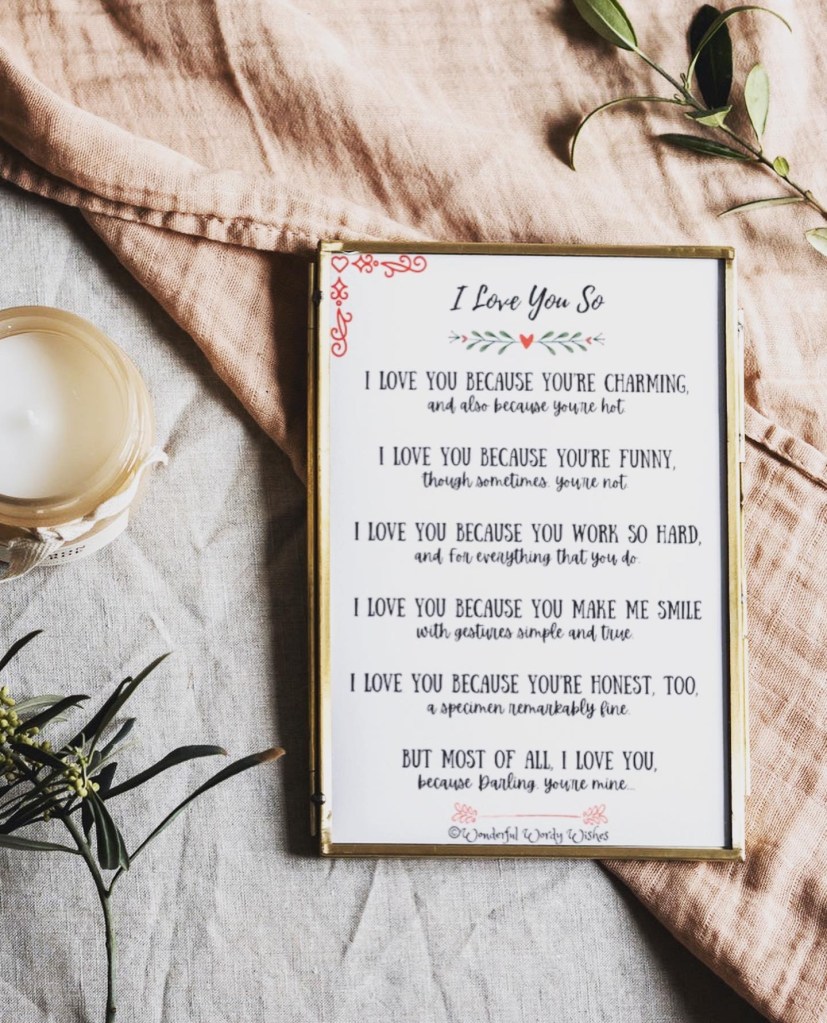 I Love You So
I LOVE YOU BECAUSE YOU'RE CHARMING,
and also because you're hot.
I LOVE YOU BECAUSE YOU'RE FUNNY,
though sometimes, you're not.
I LOVE YOU BECAUSE YOU WORK SO HARD,
and for everything that you do.
I LOVE YOU BECAUSE YOU MAKE ME SMILE
with gestures simple and true.
I LOVE YOU BECAUSE YOU'RE HONEST, TOO,
a specimen remarkably fine.
BUT MOST OF ALL, I LOVE YOU,
because Darling, you're mine...
©Wonderful Wordy Wishes